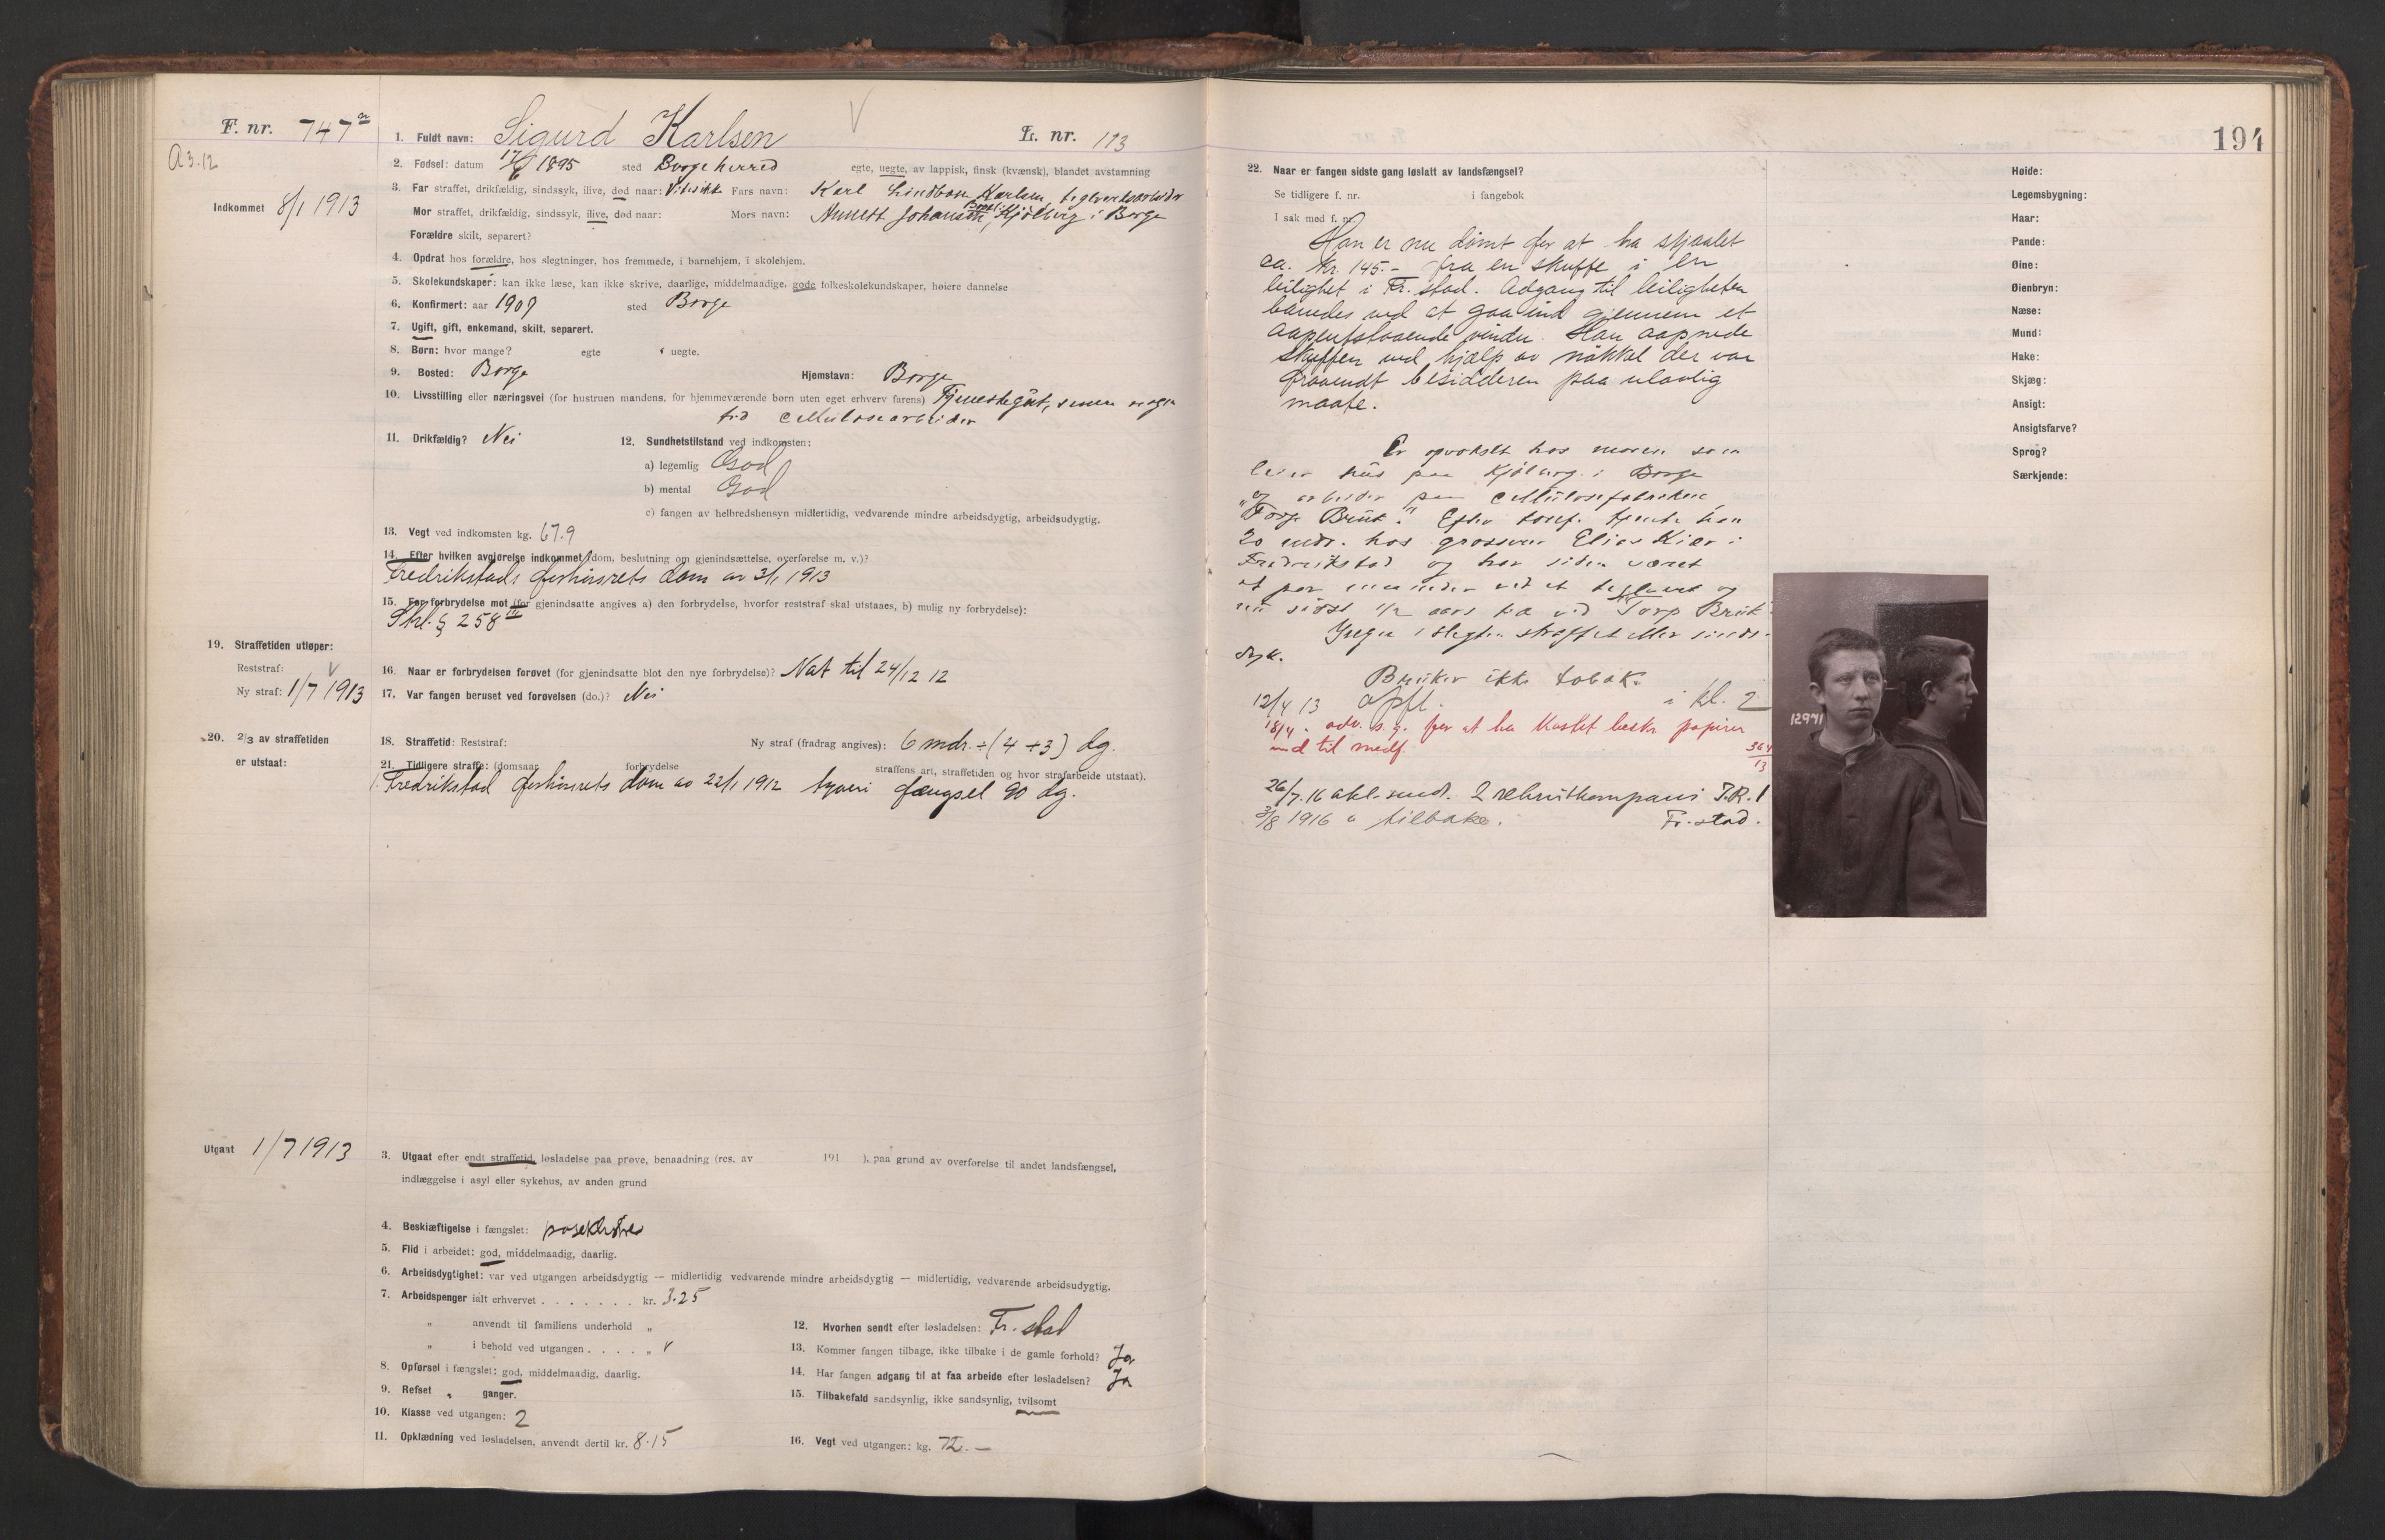 F. nr. 747
A 3.12
Indkommet 8/1 1913
1. Fuldt navn: Sigurd Karlsen
L. nr. 113
2. Fødsel: datum 17/6 1895 sted Borge herred egte, uegte, av lappisk, finsk (kvænsk), blandet avstamning
3. Far straffet, drikfældig, sindssyk, ilive, død naar: Vites ikke Fars navn: Karl Karlsen, teglverksarbeider
Mor straffet, drikfældig, sindssyk, ilive, død naar: Mors navn: Annette Johansen, Kjölberg i Borge
Forældre skilt, separert?
4. Opdrat hos forældre, hos slegtninger, hos fremmede, i barnehjem, i skolehjem.
5. Skolekundskaper: kan ikke læse, kan ikke skrive, daarlige, middelmaadige, gode folkeskolekundskaper, høiere dannelse
6. Konfirmert: aar 1909 sted Borge
7. Ugift, gift, enkemand, skilt, separert.
8. Børn: hvor mange? egte uegte.
9. Bosted: Borge Hjemstavn: Borge
10. Livsstilling eller næringsvei (for hustruen mandens, for hjemmeværende børn uten eget erhverv farens) Tjenestegut, senere nogen
tid cellulosearbeider
11. Drikfældig? Nei 12. Sundhetstilstand ved indkomsten:
a) legemlig God
b) mental God
c) fangen av helbredshensyn midlertidig, vedvarende mindre arbeidsdygtig, arbeidsudygtig.
13. Vegt ved indkomsten kg. 67.9
14. Efter hvilken avgjørelse indkommet (dom, beslutning om gjenindsættelse, overførelse m. v.)?
Fredrikstads forhörsrets dom av 3/1 1913
15. For forbrydelse mot (for gjenindsatte angives a) den forbrydelse, hvorfor reststraf skal utstaaes, b) mulig ny forbrydelse):
Strl. § 258
19. Straffetiden utløper:
Reststraf:
Ny straf: 1/7 1913
16. Naar er forbrydelsen forøvet (for gjenindsatte blot den nye forbrydelse)? Nat til 24/12 12
17. Var fangen beruset ved forøvelsen (do.)? Nei
20. 2/3 av straffetiden
er utstaat:
18. Straffetid: Reststraf: Ny straf (fradrag angives): 6 mdr. ÷ (4 + 3) dg.
21. Tidligere straffe: (domsaar forbrydelse straffens art, straffetiden og hvor strafarbeide utstaat).
1. Fredrikstad forhörsrets dom av 22/1 1912 tyveri fængsel 90 dg.
Utgaat 1/7 1913
3. Utgaat efter endt straffetid, løsladelse paa prøve, benaadning (res. av 191 ), paa grund av overførelse til andet landsfængsel,
indlæggelse i asyl eller sykehus, av anden grund
4. Beskjæftigelse i fængslet: poseklistre
5. Flid i arbeidet: god, middelmaadig, daarlig.
6. Arbeidsdygtighet: var ved utgangen arbeidsdygtig — midlertidig vedvarende mindre arbeidsdygtig — midlertidig, vedvarende arbeidsudygtig.
7. Arbeidspenger ialt erhvervet . . . . . . . kr. 3.25
" anvendt til familiens underhold "
" i behold ved utgangen . . . . "
8. Opførsel i fængslet: god, middelmaadig, daarlig.
9. Refset " ganger.
10. Klasse ved utgangen: 2
11. Opklædning ved løsladelsen, anvendt dertil kr. 8.15
12. Hvorhen sendt efter løsladelsen: Fr. stad
13. Kommer fangen tilbage, ikke tilbake i de gamle forhold? Ja
14. Har fangen adgang til at faa arbeide efter løsladelsen? Ja
15. Tilbakefald sandsynlig, ikke sandsynlig, tvilsomt
16. Vegt ved utgangen: kg. 72.—
194
22. Naar er fangen sidste gang løslatt av landsfængsel?
Se tidligere f. nr. i fangebok
I sak med f. nr.
Han er nu dömt for at ha stjaalet
ca. kr. 145.- fra en skuffe i en
leilighet i Fr. stad. Adgang til leiligheten
banedes ved at gaa ind gjennem et
aapentstaaende vindu. Han aapnede
skuffen ved hjælp av nökkel der var
fravendt besidderen paa ulovlig
maate.
Er opvokset hos moren som
leier hus paa Kjölberg i Borge
og arbeider paa cellulosefabrikken
"Torp Bruk". Efter konf. tjente han
20 mdr. hos grosserer Elias Kiær i
Fredrikstad og har siden været
et par maaneder ved et teglverk og
nu sidst 1/2 aars tid ved Torp Bruk
Ingen i slegten straffet eller sinds-
syk.
Bruker ikke tobak.
12/4 13 opfl. i kl. 2
18/4. adv. for at ha kastet beskr. papirer
ind til medf. 364/13
26/7.16 akt. send. 2 rekrutkompani I.R. 1
3/8 1916 " tilbake. Fr. stad.
12971
Høide:
Legemsbygning:
Haar:
Pande:
Øine:
Øienbryn:
Næse:
Mund:
Hake:
Skjæg:
Ansigt:
Ansigtsfarve?
Sprog?
Særkjende: